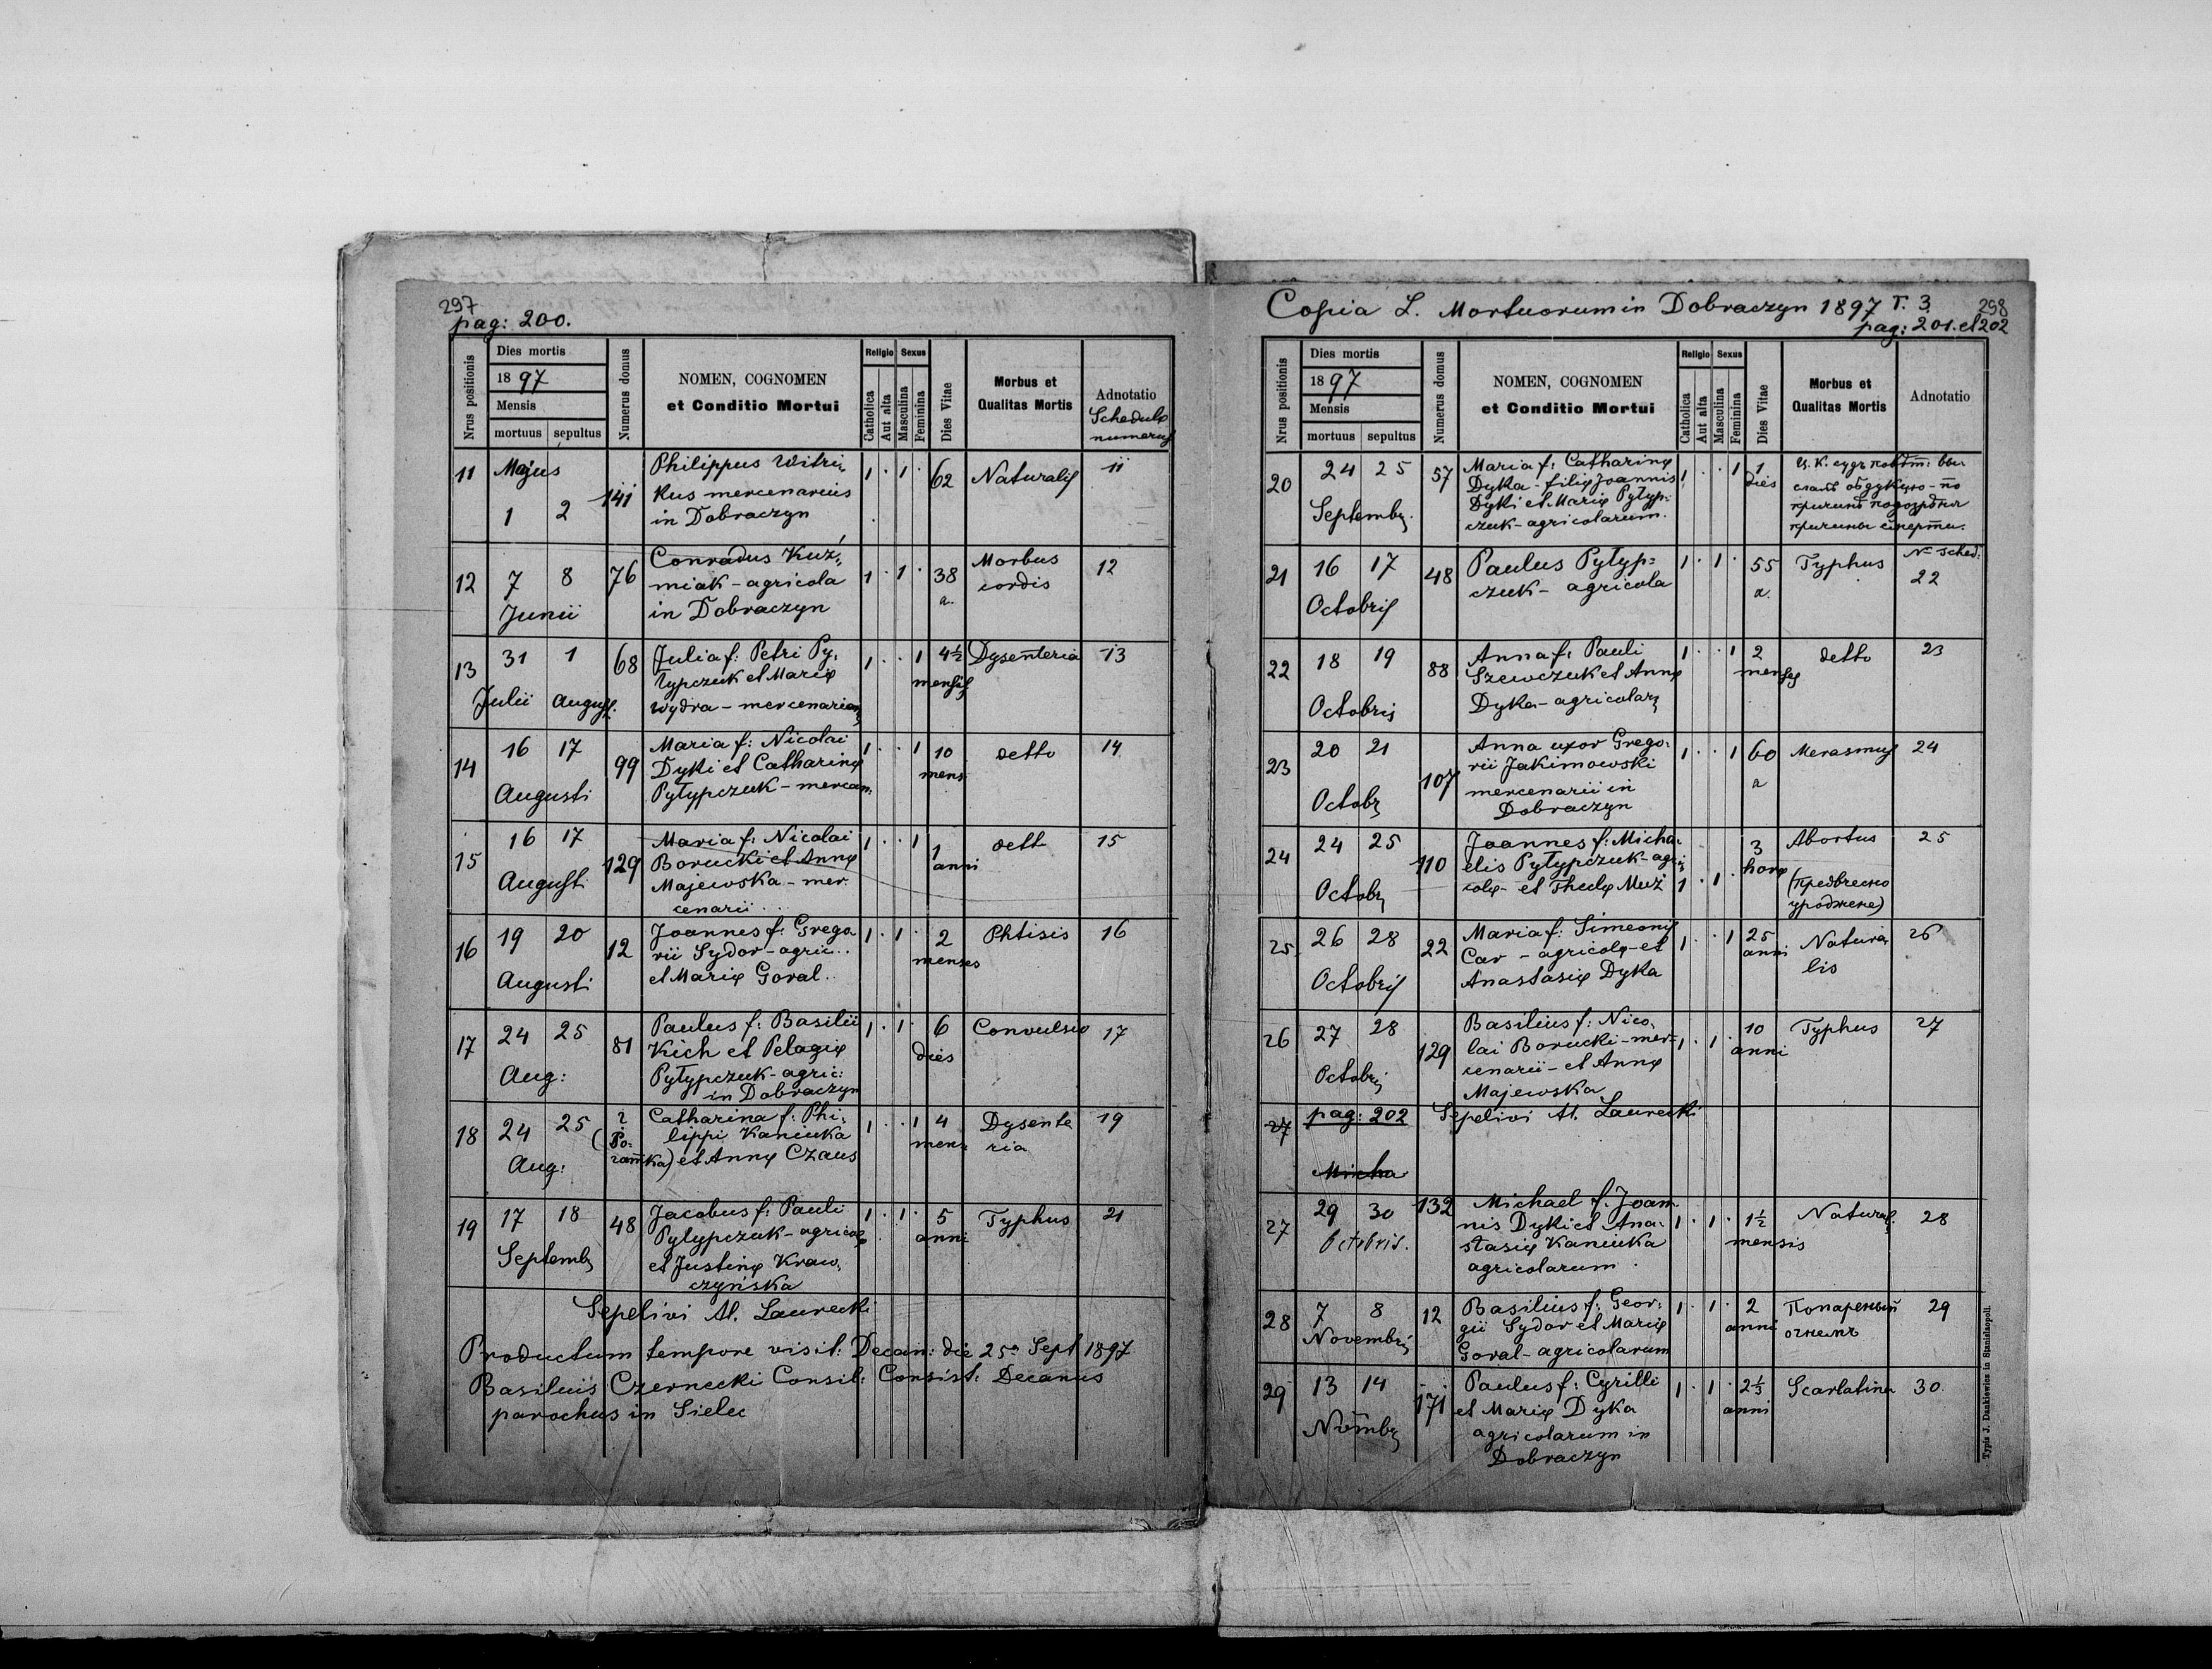 297
pag: 200.
Nrus positionis
Dies mortis
1897
Mensis
mortuus sepultus
Numerus domus
NOMEN, COGNOMEN
et Conditio Mortui
Religio Sexus
Catholica
Aut alta
Masculina
Feminina
Dies Vitae
Morbus et
Qualitas Mortis
Adnotatio
Schedulę
numerus
11 Majus 1 2 141
Philippus Witri-
kus mercenarius
in Dobraczyn
1 . 1 . 62 Naturalis 11
12 7 8 Junii 76
Conradus Kuź-
miak - agricola
in Dobraczyn
1 . 1 . 38 a. Morbus cordis 12
13 31 1 Julii August. 68
Julia f: Petri Py-
typczuk et Marię
Wydra - mercenariorum
1 . . 1 4½ mensis Dysenteria 13
14 16 17 Augusti 99
Maria f: Nicolai
Dyki et Catharinę
Pytypczuk - mercen:
1 . . 1 10 mens detto 14
15 16 17 Augusti 129
Maria f: Nicolai
Borucki et Annę
Majewska - mer-
cenarii
1 . . 1 1 anni dett 15
16 19 20 Augusti 12
Joannes f: Grego
rii Sydor - agric..
et Marię Goral..
1 . 1 . 2 menses Phtisis 16
17 24 25 Aug: 81
Paulus f: Basilii
Kich et Pelagię
Pytypczuk - agric:
in Dobraczyn
1 . 1 . 6 dies Convulsio 17
18 24 25 Aug:
Catharina f: Phi-
lippi Kaniuka
et Annę Czaus
1 . . 1 4 mens Dysente
ria 19
19 17 18 Septemb 48
Jacobus f: Pauli
Pytypczuk - agricolę
et Justinę Kraw-
czyńska
1 . 1 . 5 anni Typhus 21
Sepelivi Al. Laurecki
Productum tempore visit: Decan: die 25a Sept 1897
Basilius Czernecki Consil: Consist: Decanus
parochus in Sielec
Copia L. Mortuorum in Dobraczyn 1897 T. 3. 298
pag: 201. et 202
Nrus positionis
Dies mortis
1897
Mensis
mortuus sepultus
Numerus domus
NOMEN, COGNOMEN
et Conditio Mortui
Religio Sexus
Catholica
Aut alta
Masculina
Feminina
Dies Vitae
Morbus et
Qualitas Mortis
Adnotatio
20 24 25 Septemb. 57
Maria f: Catharinę
Dyka - filię Joannis
Dyki et Marię Pytyp-
czuk - agricolarum.
1 . . 1 1 dies
Ц. К. судъ повѣт: вы
слалъ обдукцію - по
причинѣ подозрѣнія
причины смерти.
21 16 17 Octobris 48
Paulus Pytyp-
czuk - agricola
1 . 1 . 55 a. Typhus
No sched: 22
22 18 19 Octobris 88
Anna f: Pauli
Szewczuk et Annę
Dyka - agricolar
1 . . 1 2 menses detto 23
23 20 21 Octobr 107
Anna uxor Grego-
rii Jakimowski
mercenarii in
Dobraczyn
1 . . 1 60 a Merasmus 24
24 24 25 Octobr 110
Joannes f: Micha-
elis Pytypczuk - agri
colę - et Theclę Muź
1 . 1 . 3 horę Abortus 25
25 26 28 Octobris 22
Maria f: Simeonis
Car - agricolę - et
Anastasię Dyka
1 . . 1 25 anni Natura
lis 26
26 27 28 Octobris 129
Basilius f: Nico-
lai Borucki - mer-
cenarii - et Annę
Majewska
1 . 1 . 10 anni Typhus 27
27 pag: 202 Sepelivi Al. Laurecki
Micha
27 29 30 Octobris. 132
Michael f. Joan
nis Dyki et Ana-
stasię Kaniuka
agricolarum
1 . 1 . 1½ mensis Natural. 28
28 7 8 Novembris 12
Basilius f: Geor-
gii Sydor et Marię
Goral - agricolarum
1 . 1 . 2 anni Попареный
огнемъ 29
29 13 14 Novmbr 171
Paulus f: Cyrilli
et Marię Dyka
agricolarum in
Dobraczyn
1 . 1 . 2⅓ anni Scarlatina 30.
Typis J. Dankiewicz in Stanislaopoli.